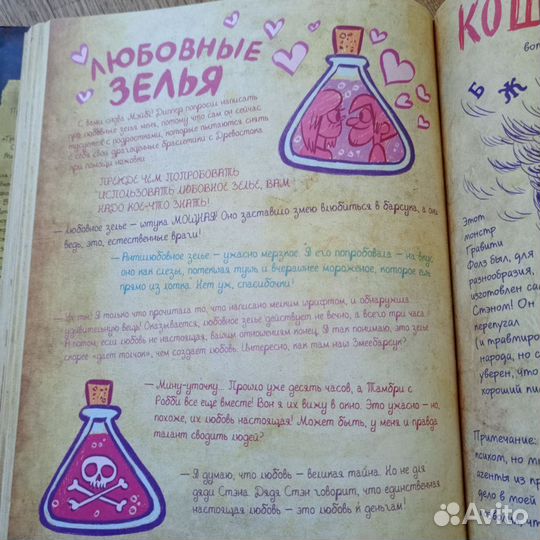 ЛЮБОВНЫЕ
ЗЕЛЬЯ
С вами снова Мэйбл! Диппер попросил написать
про любовные зелья меня, потому что сам он сейчас
тусуется с подростками, которые пытаются снять
с себя свои дурацкие браслетики с Древостока
при помощи ножовки.
ПРЕЖДЕ ЧЕМ ПОПРОБОВАТЬ
ИСПОЛЬЗОВАТЬ ЛЮБОВНОЕ ЗЕЛЬЕ, ВАМ
НАДО КОЕ-ЧТО ЗНАТЬ!
— Любовное зелье — штука МОЩНАЯ! Оно заставило змею влюбиться в барсука, а они
ведь, это, естественные враги!
— Антилюбовное зелье — ужасно мерзкое. Я его попробовала — на вкус
оно как слёзы, потёкшая тушь и вчерашнее мороженое, которое ешь
прямо из лотка. Нет уж, спасибочки!
— Ух ты! Я только что прочитала то, что написано мелким шрифтом, и обнаружила
удивительную вещь! Оказывается, любовное зелье действует не вечно, а всего три часа.
И потом, если любовь не настоящая, вашим отношениям конец. Я так понимаю, это зелье
скорее «даёт толчок», чем создаёт любовь. Интересно, как там наш Змеебарсук?
— Мину-уточку... Прошло уже десять часов, а Тамбри с
Робби всё ещё вместе! Вон я их вижу в окно. Это ужасно — но,
похоже, их любовь настоящая! Может быть, у меня и правда
талант сводить людей?
— Я думаю, что любовь — великая тайна. Но не для
дяди Стэна. Дядя Стэн говорит, что единственная
настоящая любовь — это любовь к деньгам!
КОШ
Б Ж
Этот
монстр
Гравити
Фолз был, для
разнообразия,
изготовлен
Стэном! Он
перепугал
(и травмиро
народа, но с
уверен, что
хороший
Примечание:
психом, но
агента из
дело в моей
что
Avito